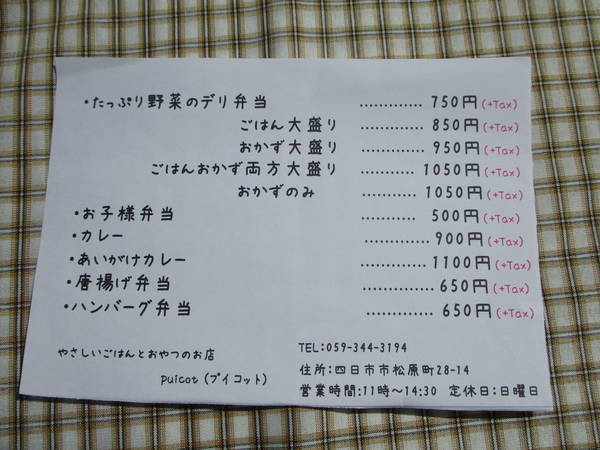 ・たっぷり野菜のデリ弁当 ............. 750円(+Tax)
ごはん大盛り ............. 850円(+Tax)
おかず大盛り ............. 950円(+Tax)
ごはんおかず両方大盛り ........... 1050円(+Tax)
おかずのみ ............ 1050円(+Tax)
・お子様弁当 ............ 500円(+Tax)
・カレー ............. 900円(+Tax)
・あいがけカレー ............. 1100円(+Tax)
・唐揚げ弁当 .............. 650円(+Tax)
・ハンバーグ弁当 .............. 650円(+Tax)
やさしいごはんとおやつのお店
puicot (プイコット)
TEL:059-344-3194
住所:四日市市松原町28-14
営業時間:11時〜14:30 定休日:日曜日